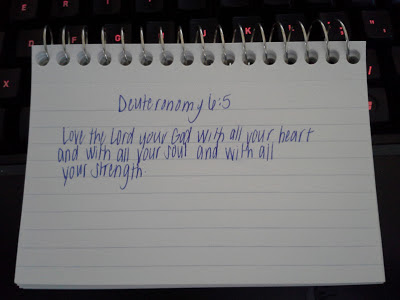 Deuteronomy 6:5
Love the Lord your God with all your heart
and with all your soul and with all
your strength